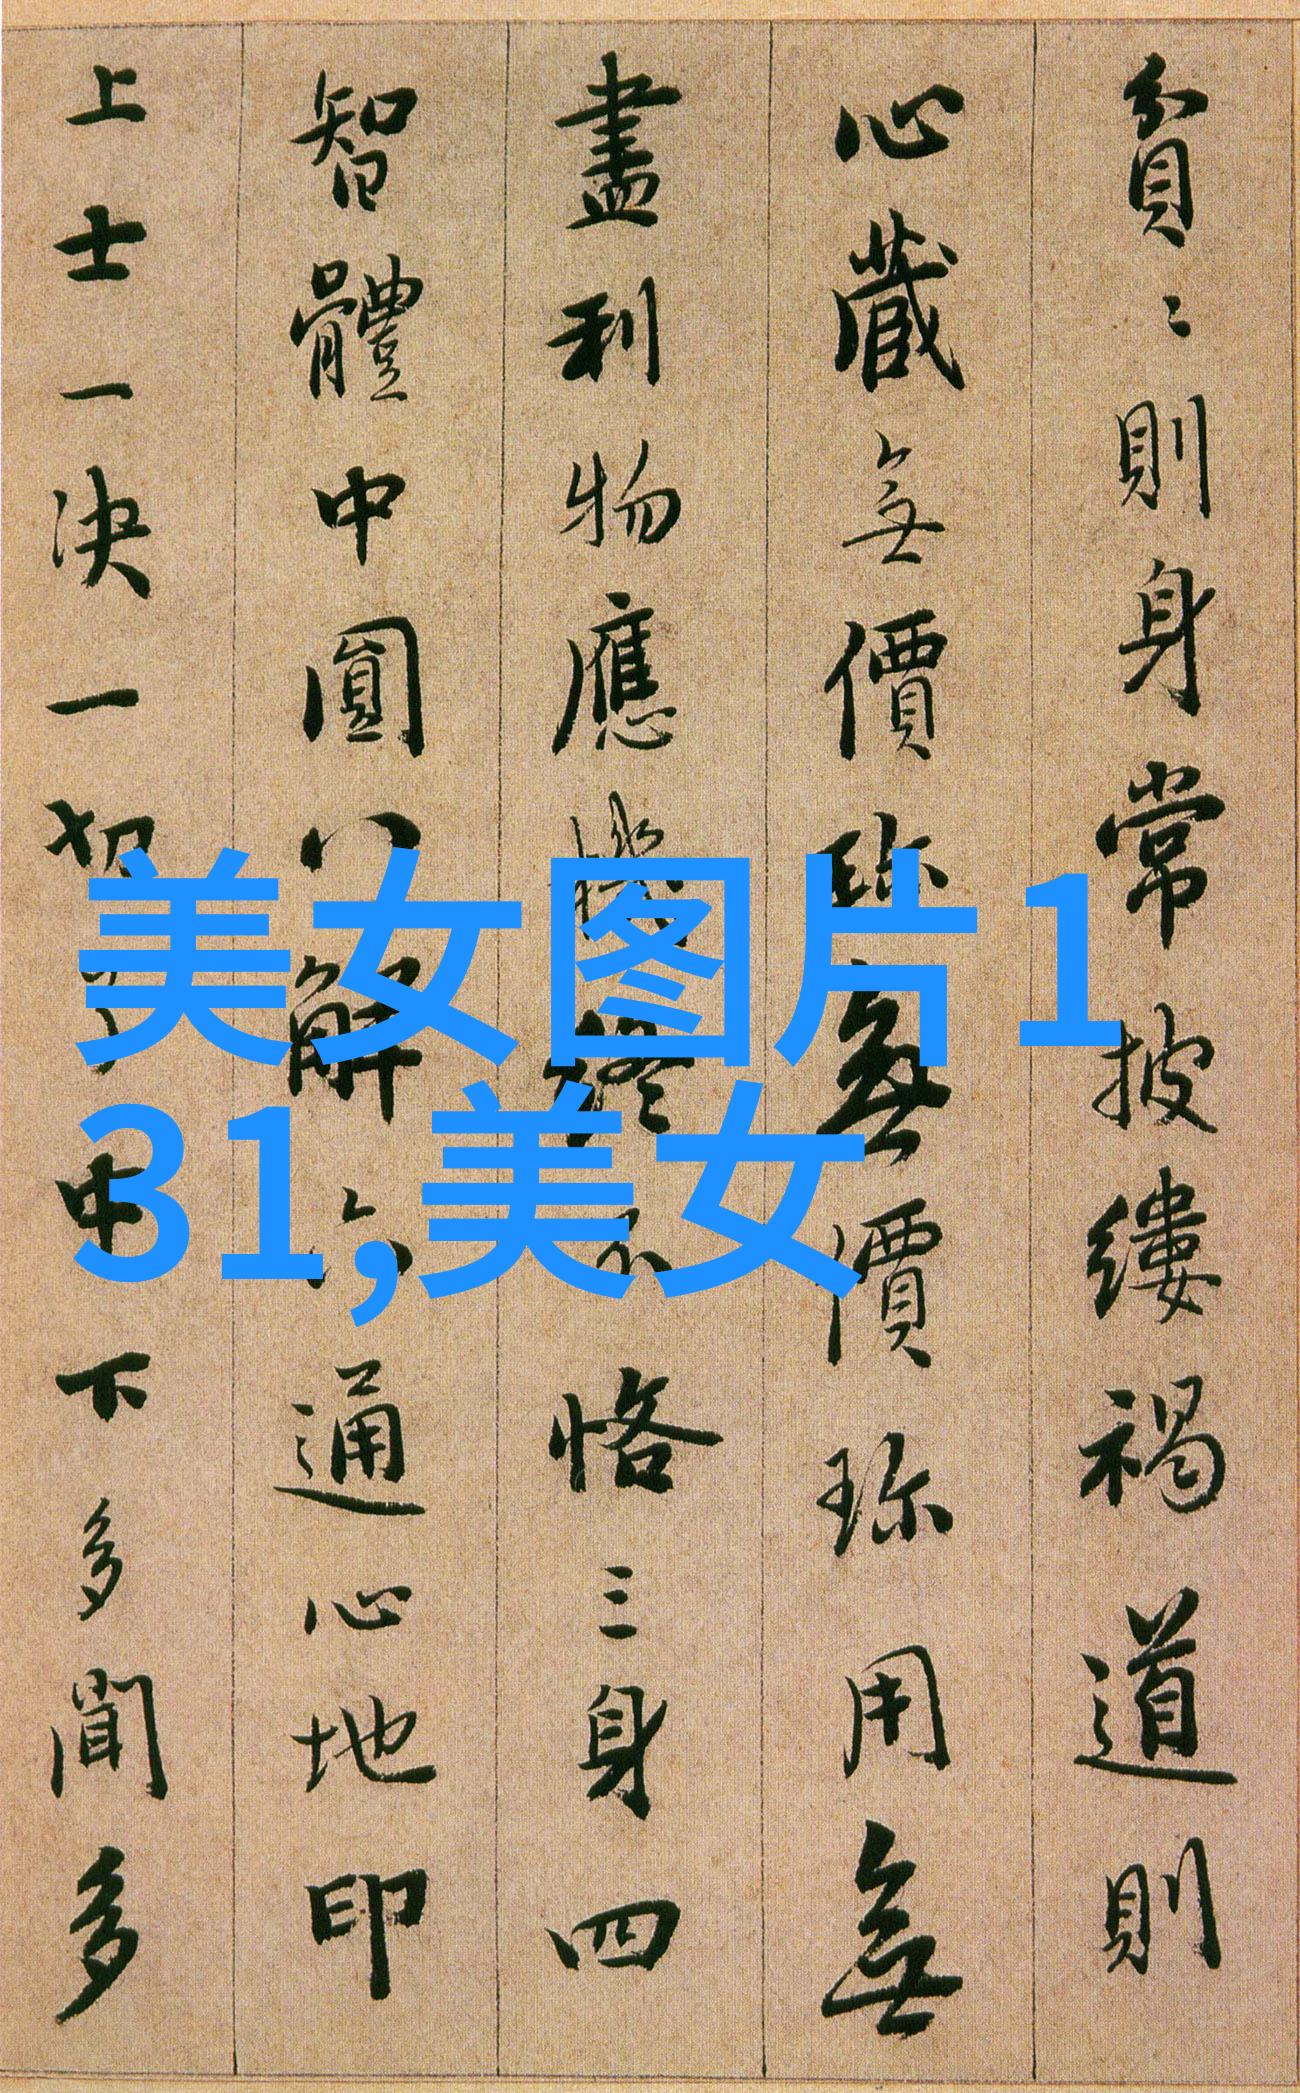 貧〻則身常披縷褐道則
心藏無價珎無價珎用無
盡利物應機終不恪三身四
智體中圓八解六通心地印
上士一決一切了中下多聞多
美女图片1
31,美女